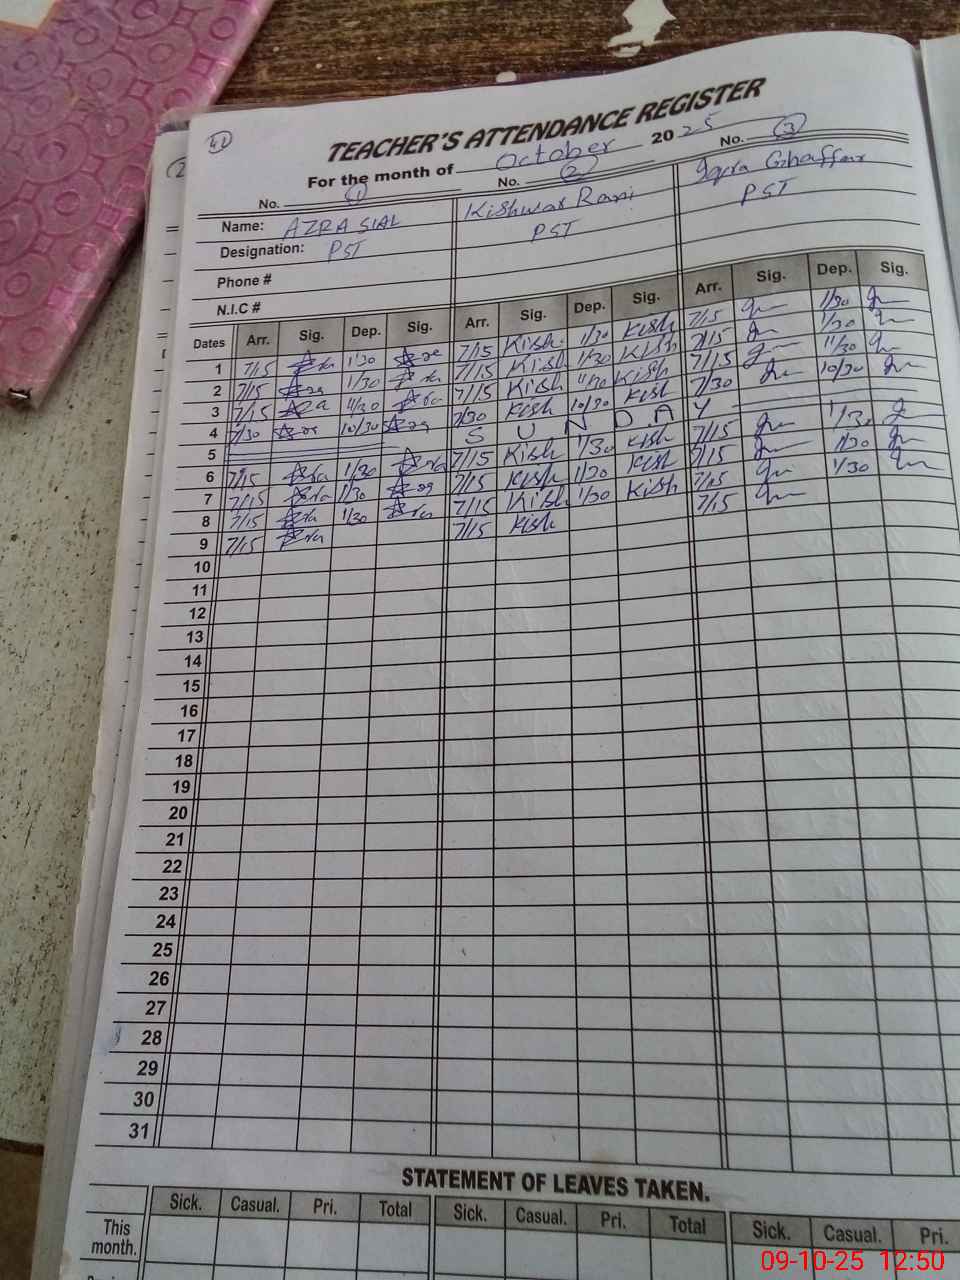 42
TEACHER'S ATTENDANCE REGISTER
For the month of October 2025
No. 1 No. 2 No. 3
Name: AZRA SIAL Kishwar Rani Iqra Ghaffar
Designation: PST PST PST
Phone #
N.I.C #
Dates Arr. Sig. Dep. Sig. Arr. Sig. Dep. Sig. Arr. Sig. Dep. Sig.
1 7/15 1/30 7/15 Kish 1/30 Kish 7/15 1/30
2 7/15 1/30 7/15 Kish 1/30 Kish 7/15 1/30
3 7/15 11/30 7/15 Kish 11/30 Kish 7/15 11/30
4 7/30 10/30 7/30 Kish 10/30 Kish 7/30 10/30
5 SUNDAY
6 7/15 1/30 7/15 Kish 1/30 Kish 7/15 1/30
7 7/15 1/30 7/15 Kish 1/30 Kish 7/15 1/30
8 7/15 1/30 7/15 Kish 1/30 Kish 7/15 1/30
9 7/15 7/15 Kish 7/15
10
11
12
13
14
15
16
17
18
19
20
21
22
23
24
25
26
27
28
29
30
31
STATEMENT OF LEAVES TAKEN.
Sick. Casual. Pri. Total Sick. Casual. Pri. Total Sick. Casual. Pri.
This month.
09-10-25 12:50